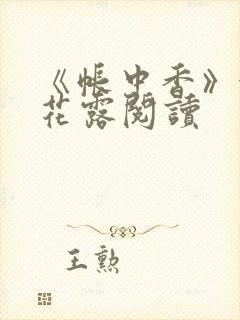 《帳中香》
花露閱讀
王勲